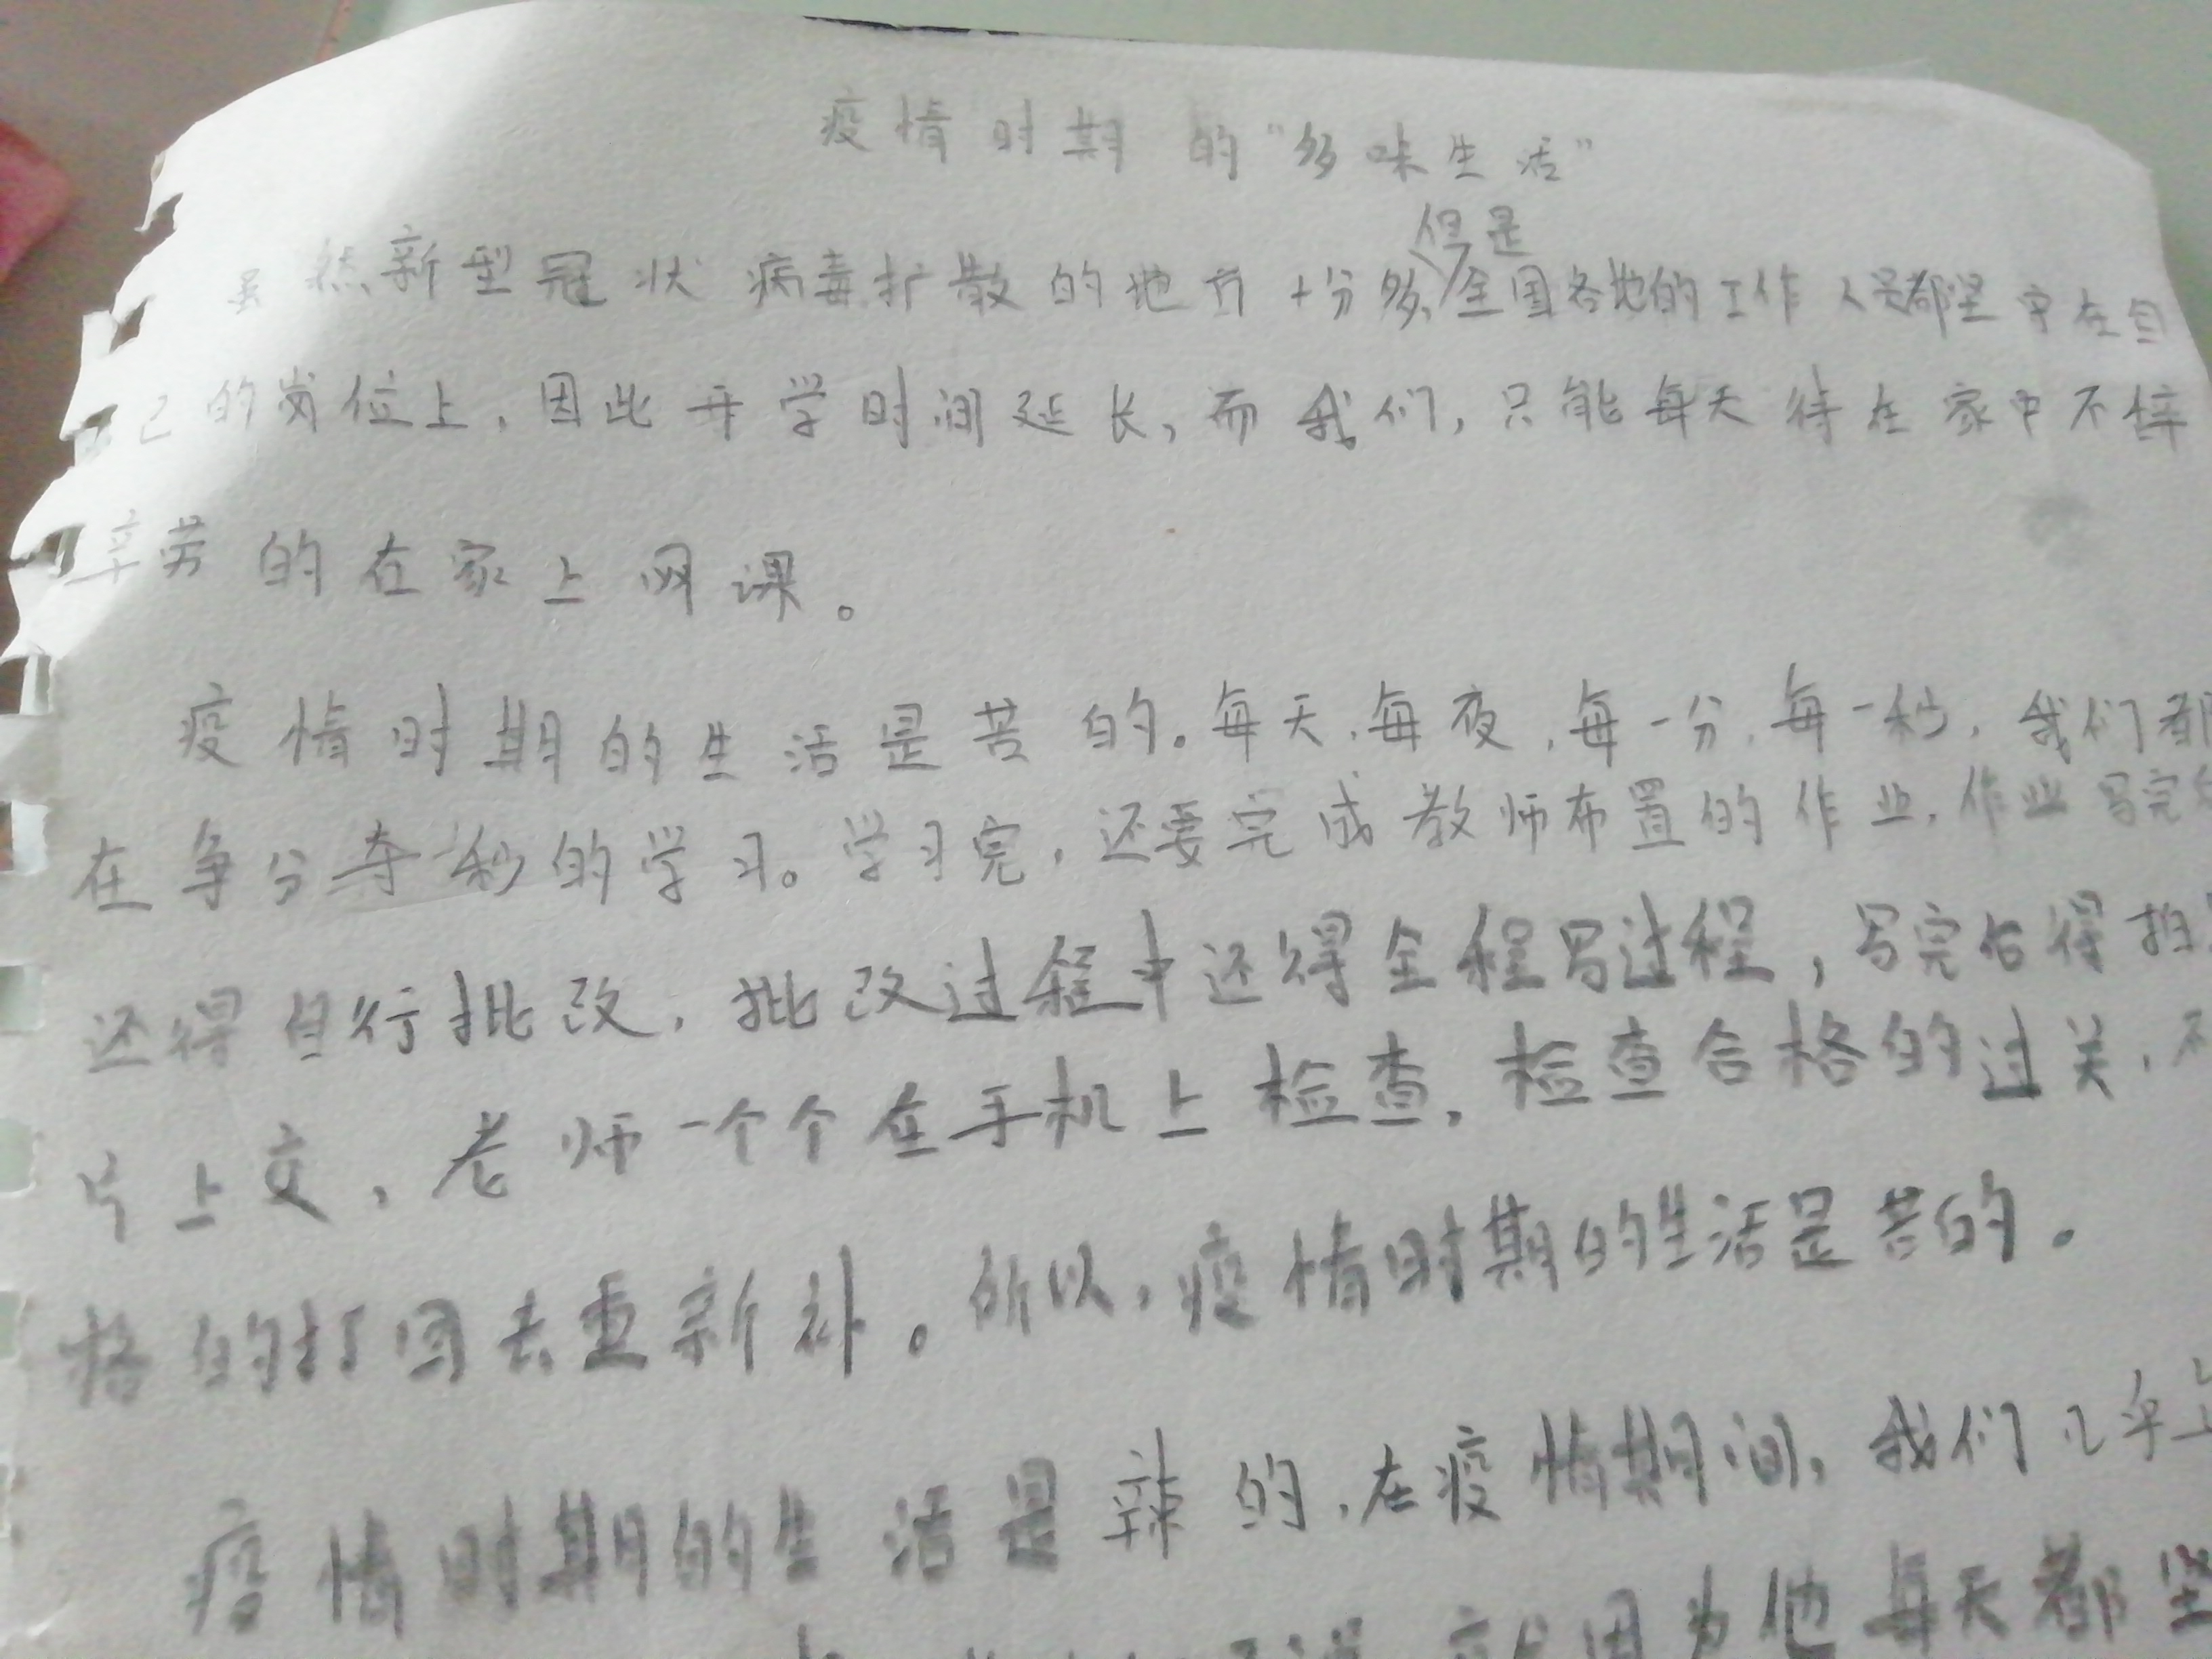 疫情时期的“多味生活”
虽然新型冠状病毒扩散的地方十分多,但是全国各地的工作人员都坚守在自
己的岗位上,因此开学时间延长,而我们,只能每天待在家中不辞
辛劳的在家上网课。
疫情时期的生活是苦的。每天,每夜,每一分,每一秒,我们都
在争分夺秒的学习。学习完,还要完成教师布置的作业,作业写完
还得自行批改,批改过程中还得全程写过程,写完后得拍
片上交,老师一个个在手机上检查,检查合格的过关,不
格的打回去重新补。所以,疫情时期的生活是苦的。
疫情时期的生活是辣的,在疫情期间,我们几乎
就因为他每天都坚